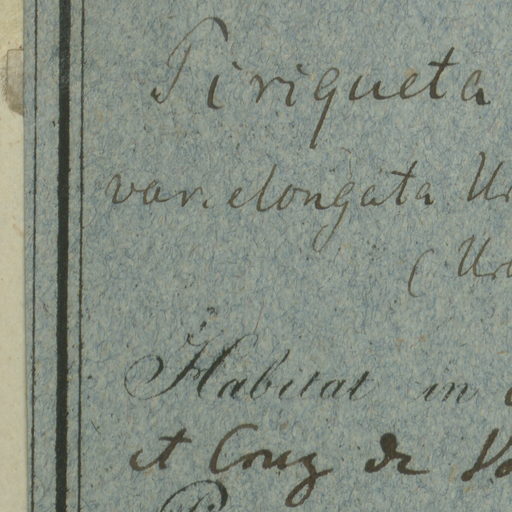 Piriqueta
var. elongata Ur
( Ur
Habitat in
et Cruz de